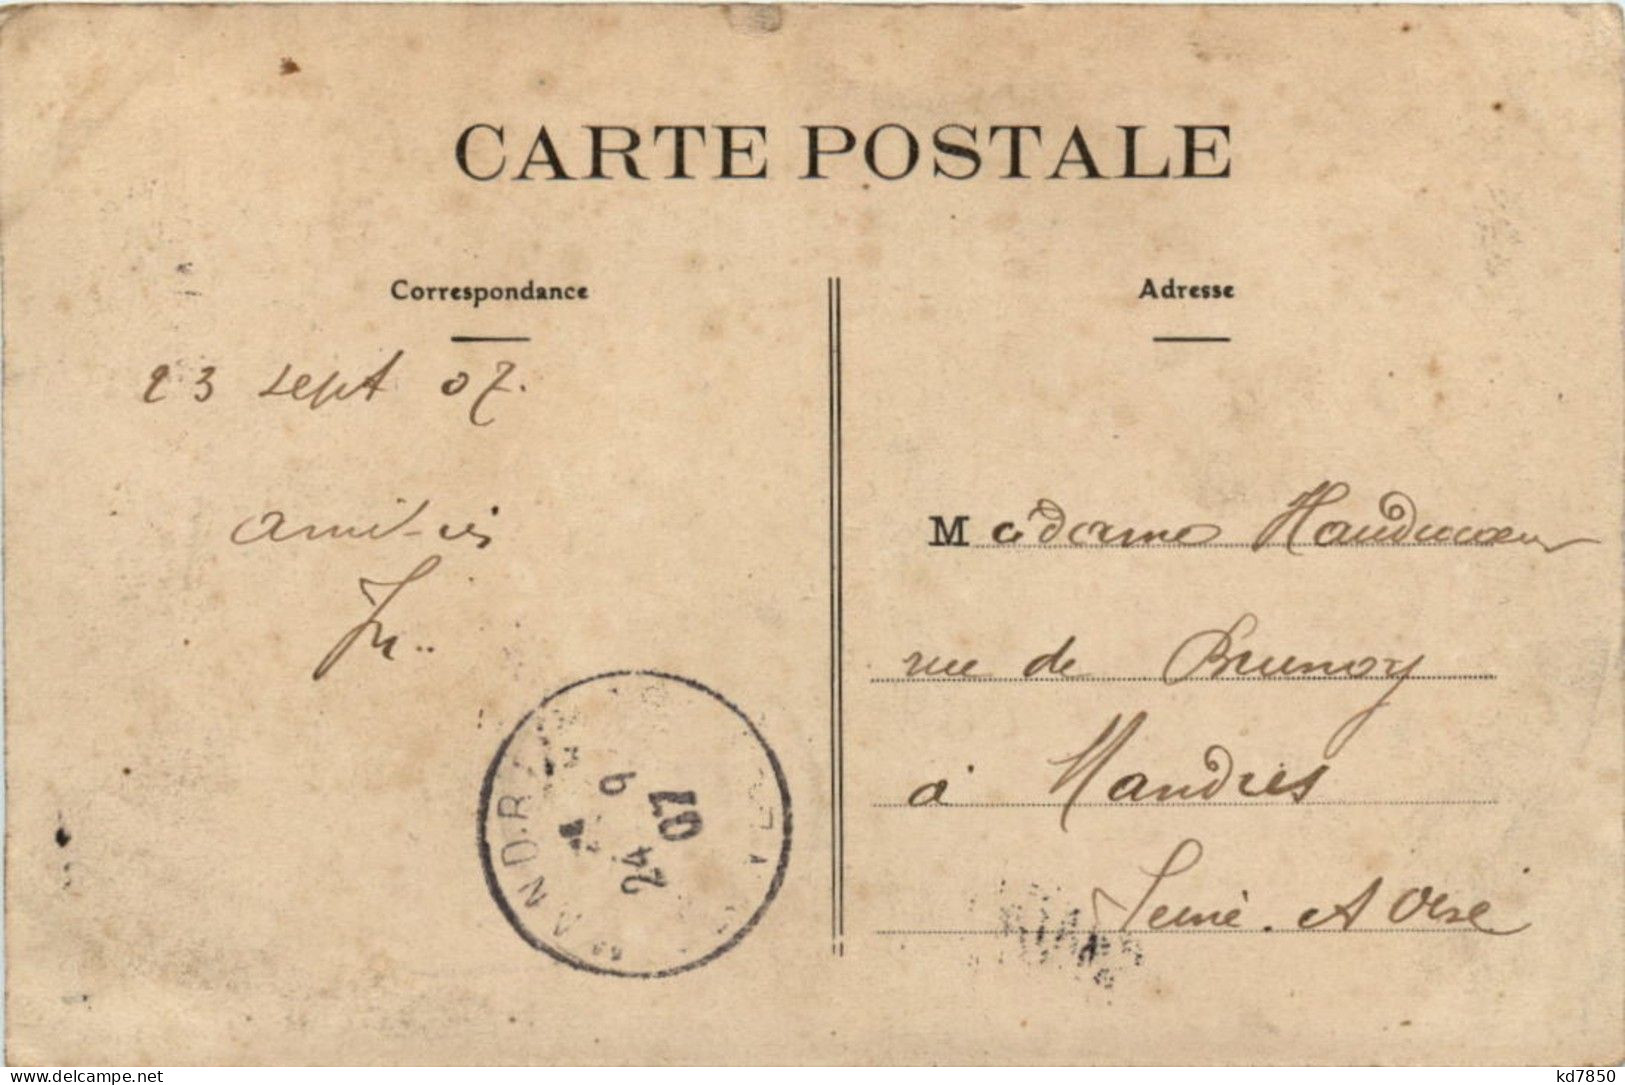 CARTE POSTALE
Correspondance
23 sept 07.
amitiés
Adresse
Madame Hauducoeur
rue de Brunoy
à Mandres
Seine et Oise
MANDRES
24 9
07
www.delcampe.net
kd7850